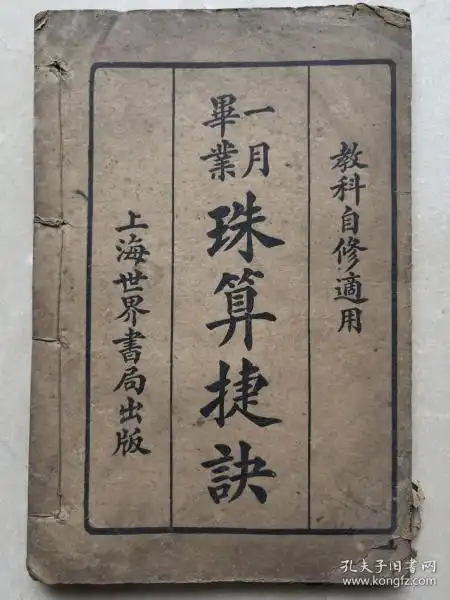 教科自修適用
一月畢業
珠算捷訣
上海世界書局出版
孔夫子旧书网
www.kongfz.com